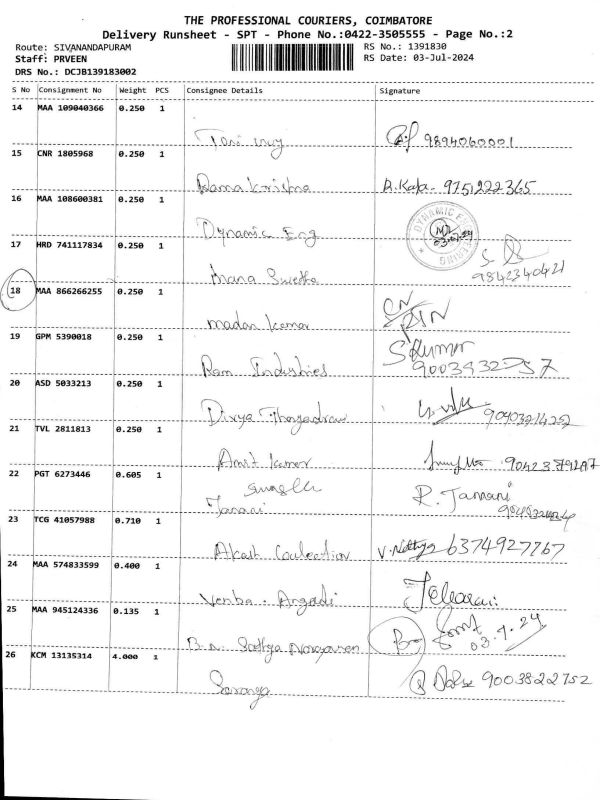 THE PROFESSIONAL COURIERS, COIMBATORE
Delivery Runsheet - SPT - Phone No.:0422-3505555 - Page No.:2
Route: SIVANANDAPURAM
RS No.: 1391830
Staff: PRVEEN
RS Date: 03-Jul-2024
DRS No.: DCJB139183002
S No Consignment No Weight PCS Consignee Details Signature
14 MAA 109040366 0.250 1
9894060001
15 CNR 1805968 0.250 1
Rama Krishna
9751222365
16 MAA 108600381 0.250 1
Dynamic Eng
DYNAMIC ENGINEERING
17 HRD 741117834 0.250 1
9842340421
18 MAA 866266255 0.250 1
madan kumar
19 GPM 5390018 0.250 1
SKumar
Ram Industries
20 ASD 5033213 0.250 1
Divya
21 TVL 2811813 0.250 1
Amit kumar
22 PGT 6273446 0.605 1
Janani R. Janani
23 TCG 41057988 0.710 1
Akash Collection 6374927767
24 MAA 574833599 0.400 1
Venba. Angadi
25 MAA 945124336 0.135 1
B.N Sathya Narayanan 03.7.24
26 KCM 13135314 4.000 1
Saranya 9003822752